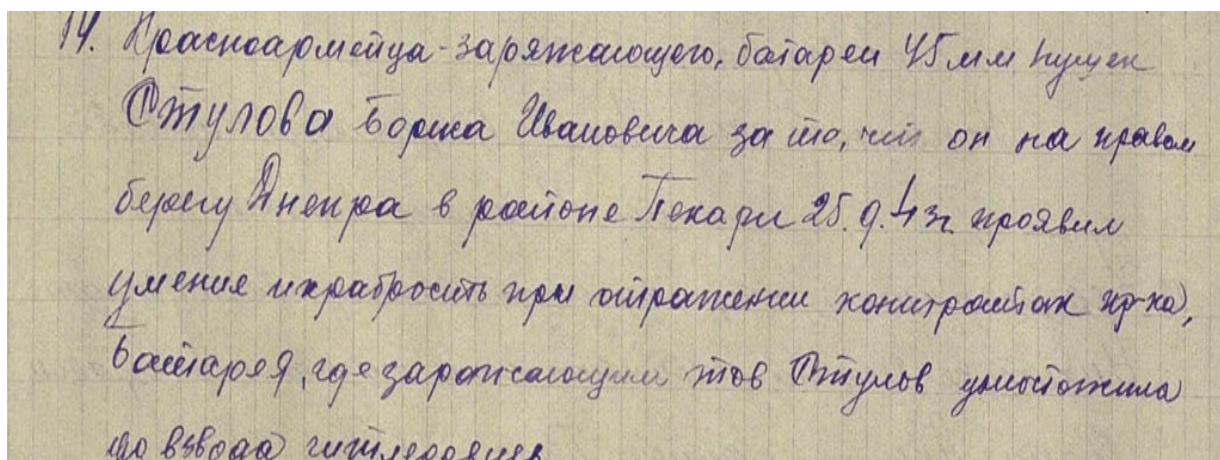 14. Красноармейца-заряжающего, батареи 45 мм пушек
Стулова Бориса Ивановича за то, что он на правом
берегу Днепра в районе Пекари 25.9.43г. проявил
умение и храбрость при отражении контратак пр-ка,
Батарея, где заряжающим тов Стулов уничтожила
до взвода гитлеровцев